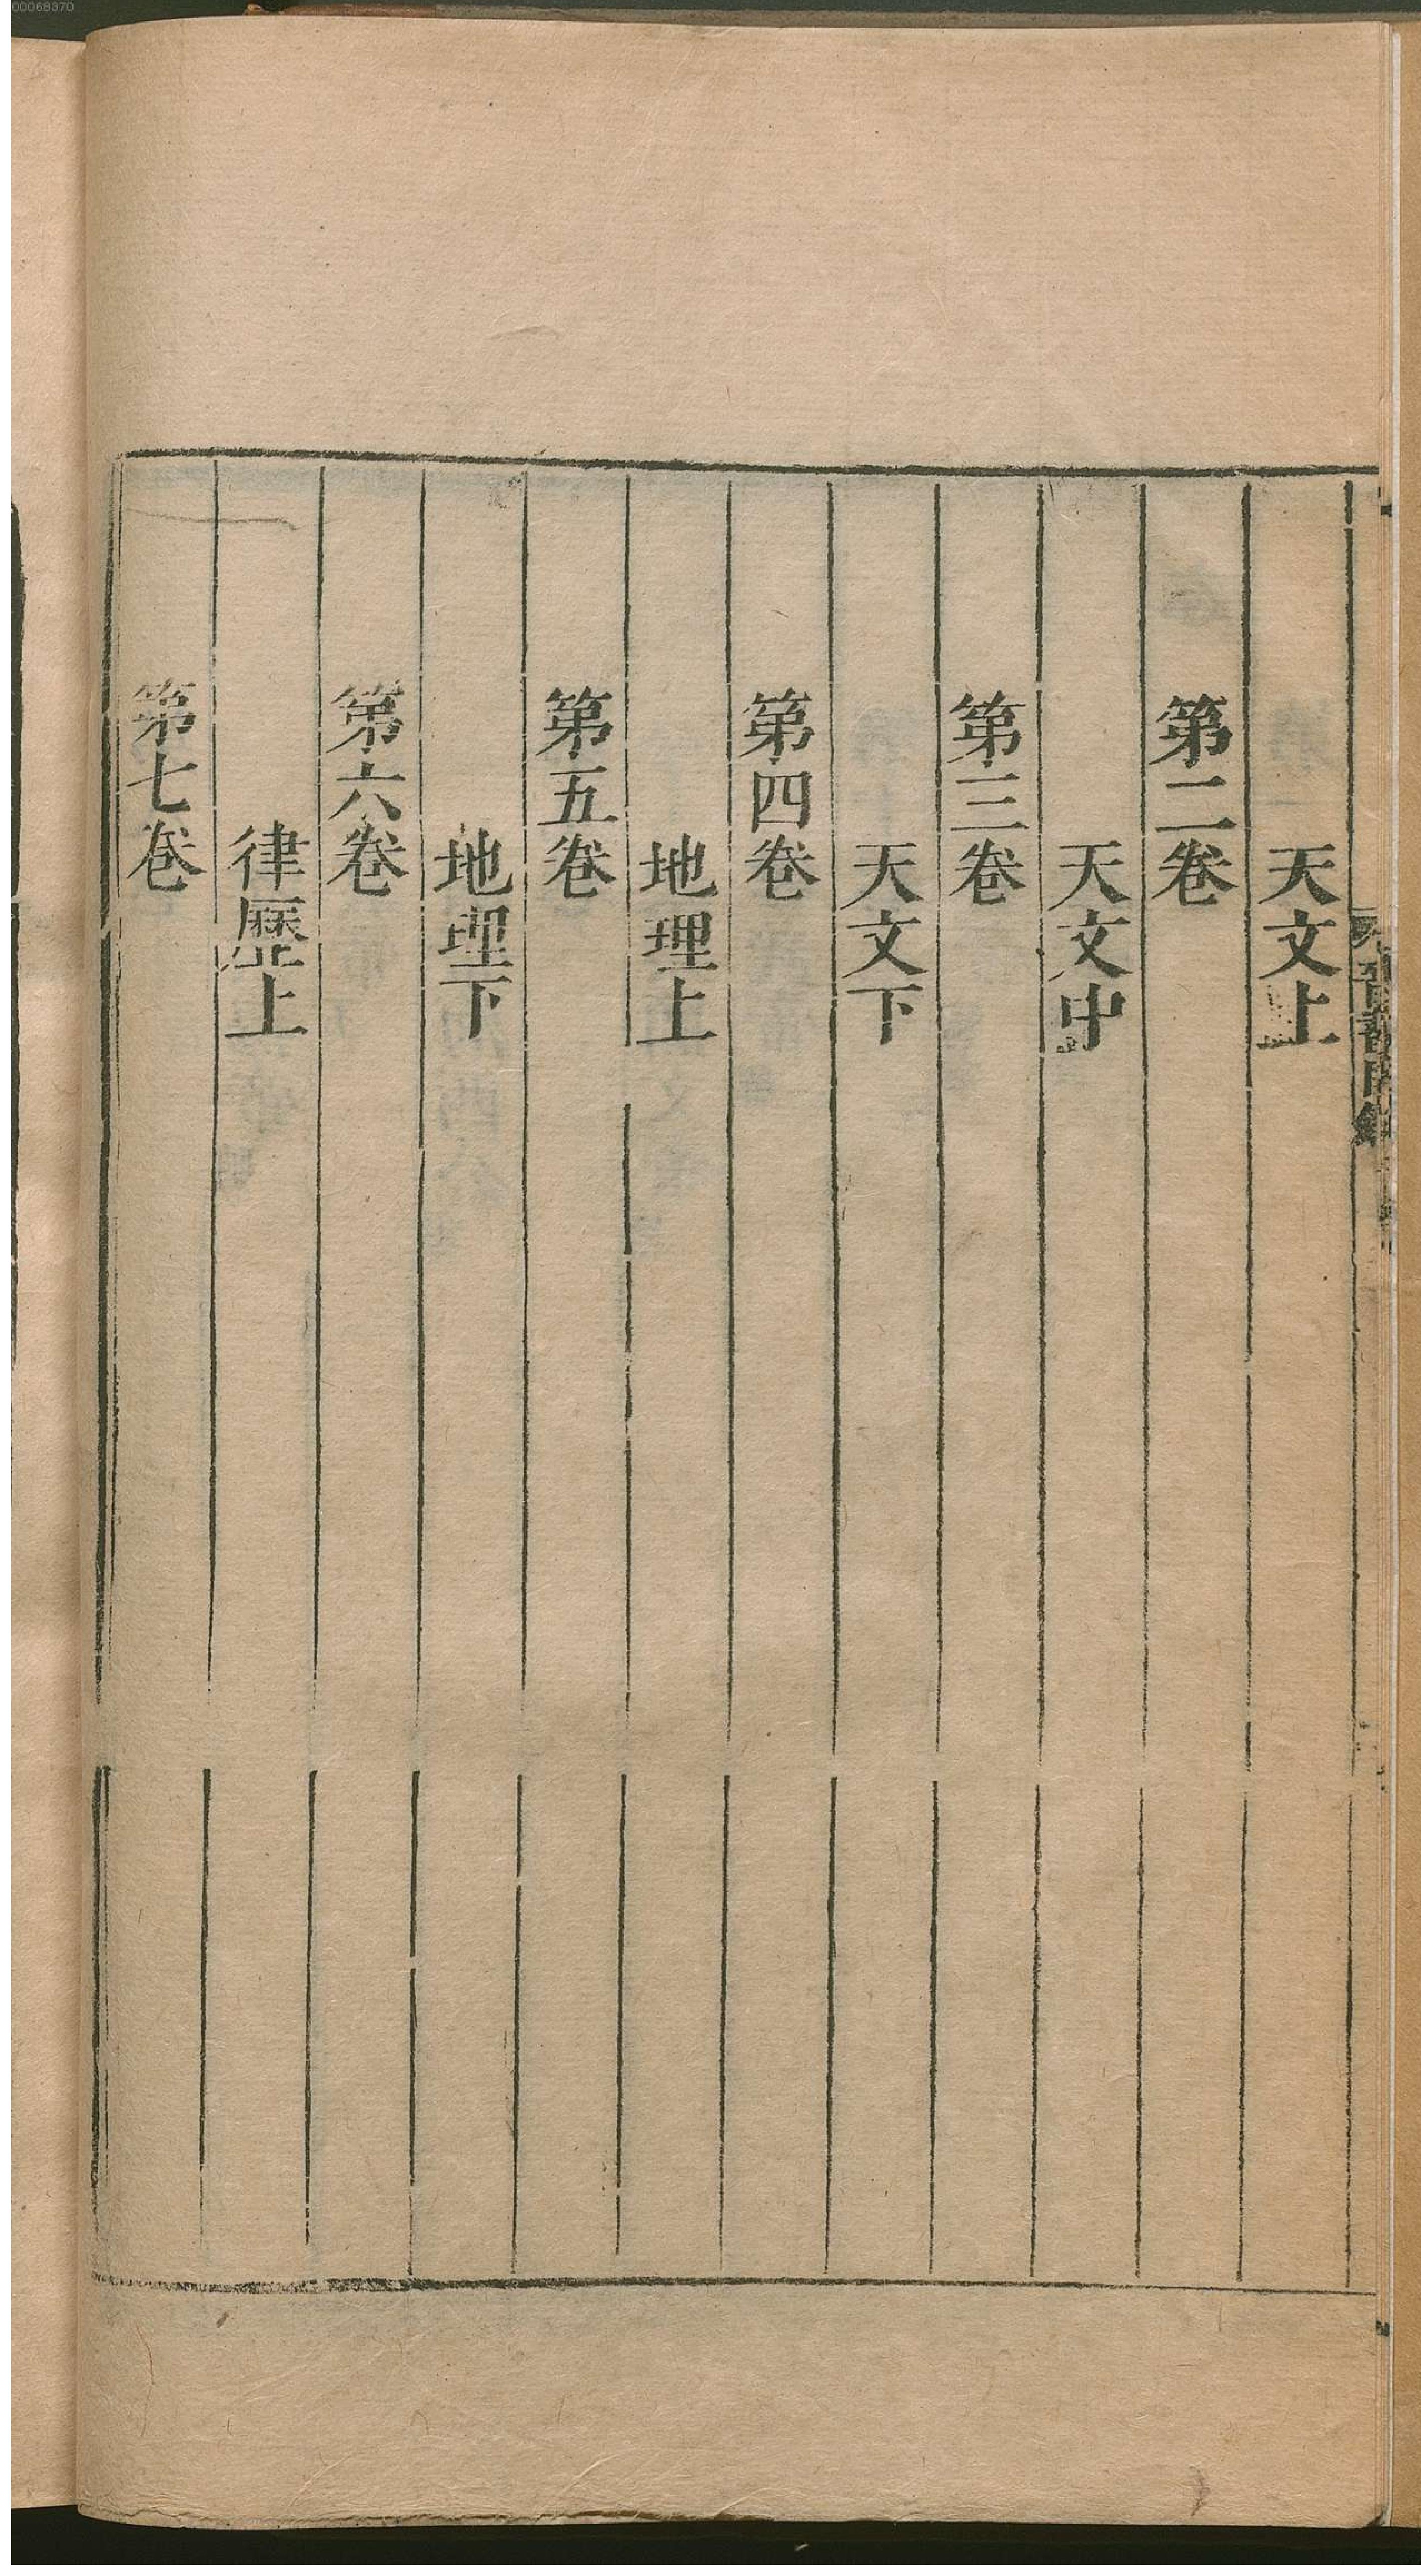 天文上
第二卷
天文中
第三卷
天文下
第四卷
地理上
第五卷
地理下
第六卷
律歷上
第七卷
晉書目錄
00068370